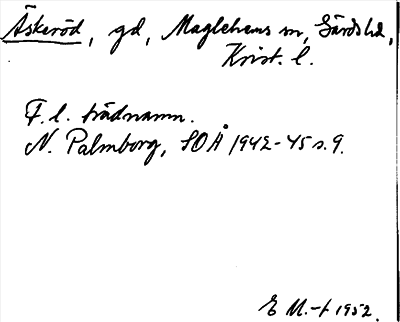 Äskeröd, gd, Maglehems sn, Gärds hd,
Krist. l.
F. l. trädnamn.
N. Palmborg, SOÅ 1942-45 s. 9.
E M.-t 1952.